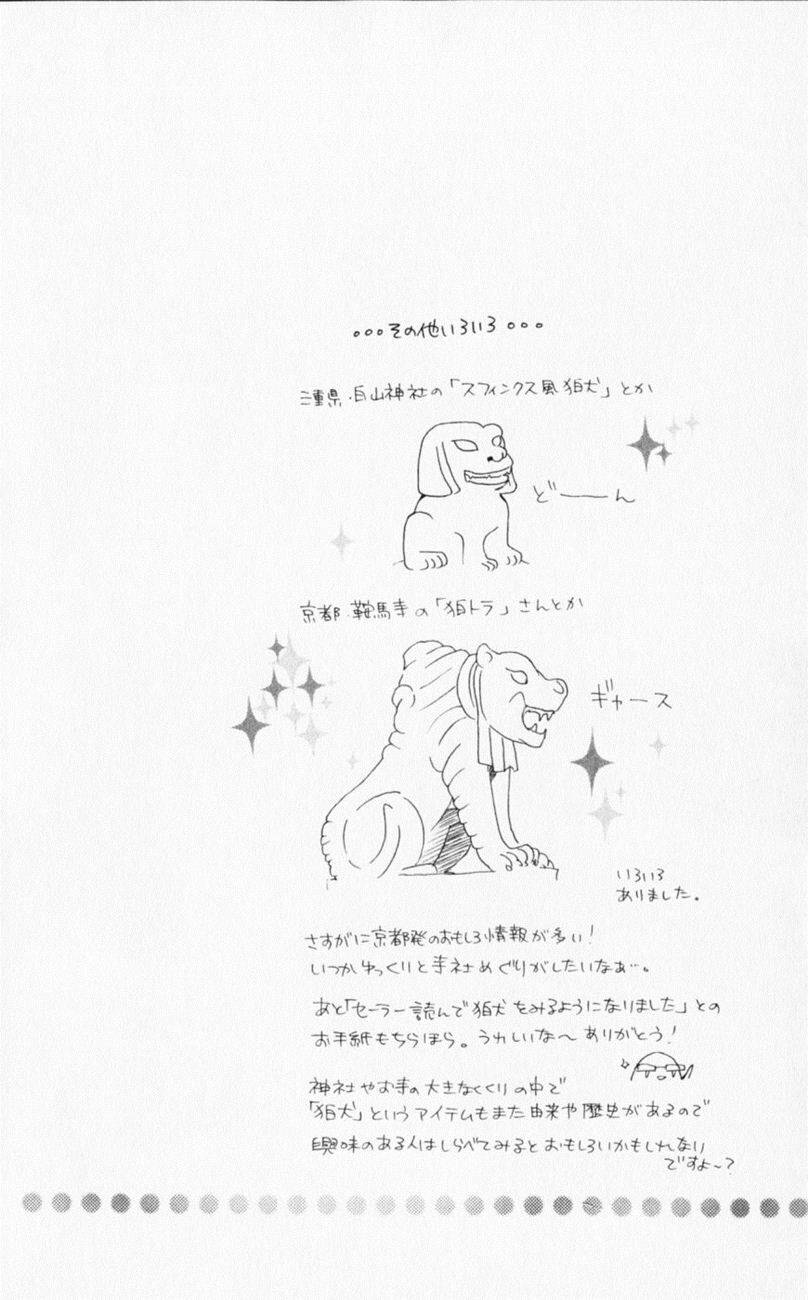 。。。その他いろいろ。。。
三重県・白山神社の「スフィンクス風狛犬」とか
どーーん
京都・鞍馬寺の「狛トラ」さんとか
ギャース
いろいろ
ありました。
さすがに京都発のおもしろ情報が多い！
いつかゆっくりと寺社めぐりがしたいなぁ…。
あと「セーラー読んで狛犬をみるようになりました」との
お手紙もちらほら。うれしいな〜ありがとう！
神社やお寺の大きなくくりの中で
「狛犬」というアイテムもまた由来や歴史があるので
興味のある人はしらべてみるとおもしろいかもしれない
ですよ〜？